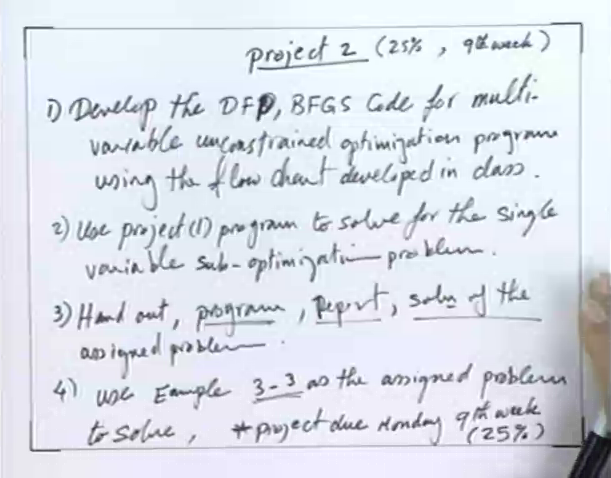 project 2 (25%, 9th week)
1) Develop the DFP, BFGS Code for multi-
variable unconstrained optimization program
using the flow chart developed in class.
2) Use project (1) program to solve for the single
variable sub-optimization problem.
3) Hand out, program, Report, soln of the
assigned problem.
4) use Example 3-3 as the assigned problem
to solve, *project due Monday 9th week
(25%)